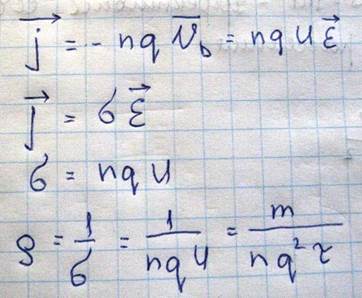 j⃗ = - nq v̅₀ = nqu ε⃗
j⃗ = σ ε⃗
σ = nqu
ρ = 1/σ = 1/nqu = m/nq²τ